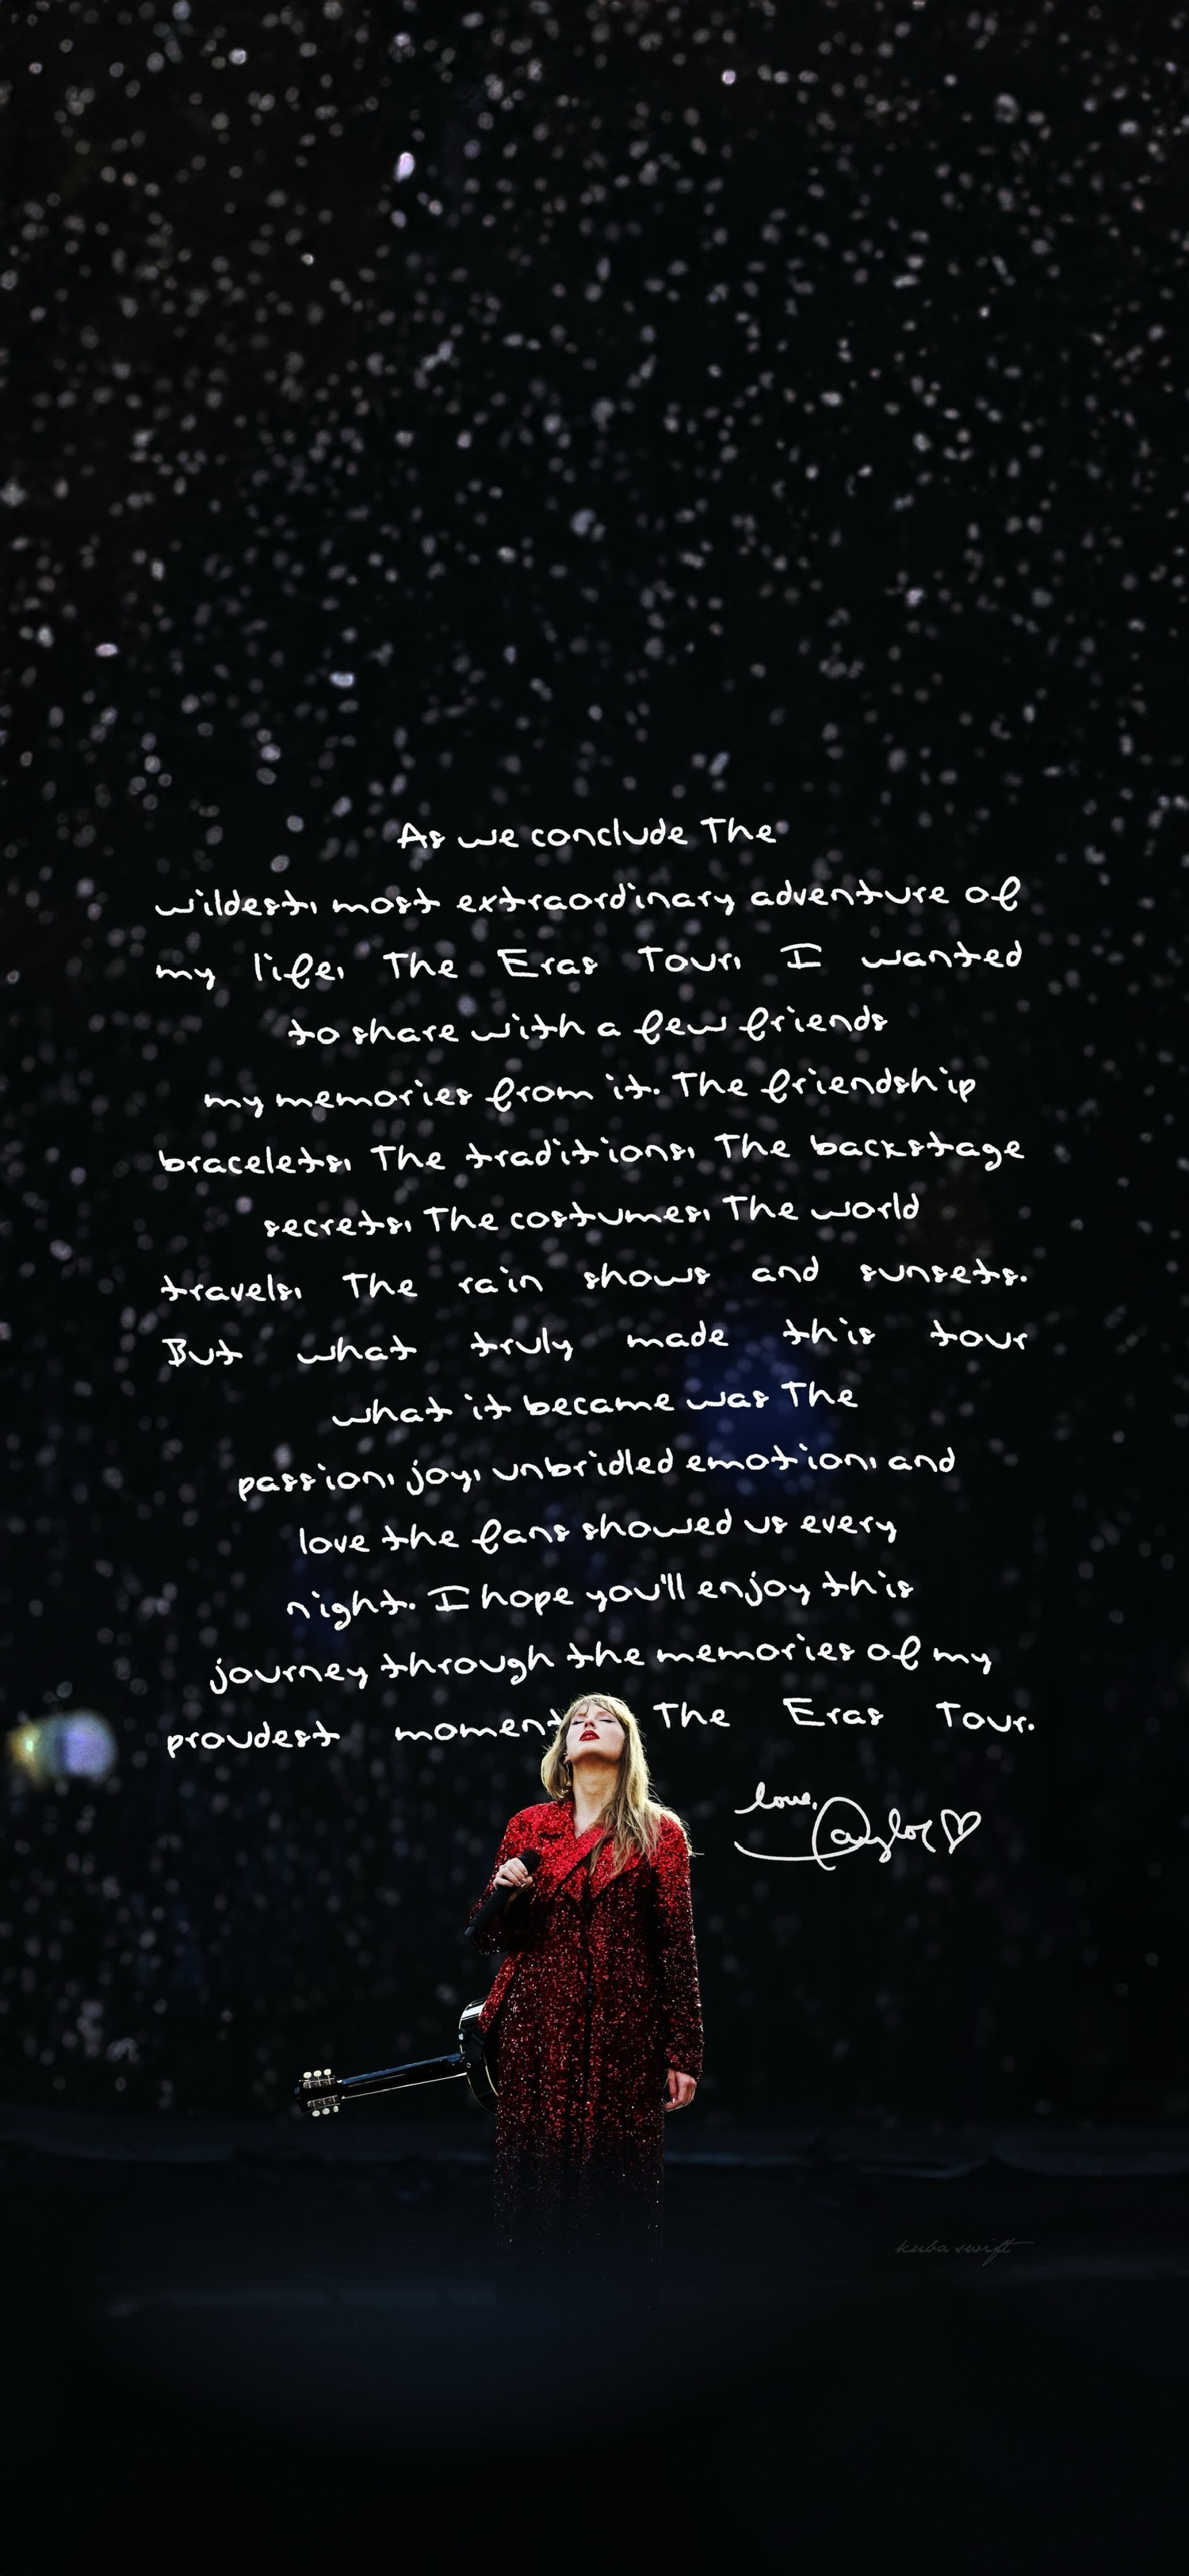 As we conclude The
wildest, most extraordinary adventure of
my life, The Eras Tour, I wanted
to share with a few friends
my memories from it. The friendship
bracelets, The traditions, The backstage
secrets, The costumes, The world
travels, The rain shows and sunsets.
But what truly made this tour
what it became was The
passion, joy, unbridled emotion, and
love the fans showed us every
night. I hope you'll enjoy this
journey through the memories of my
proudest moment The Eras Tour.
love,
Taylor♡
kuba swift